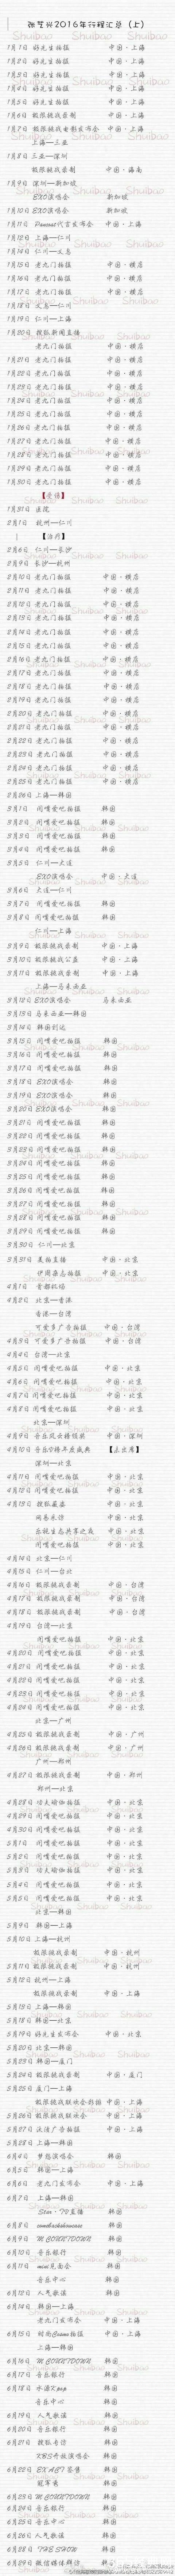 张艺兴2016年行程汇总（上）
1月1日 好先生拍摄 中国·上海
1月2日 好先生拍摄 中国·上海
1月3日 好先生拍摄 中国·上海
1月4日 好先生拍摄 中国·上海
1月5日 好先生拍摄 中国·上海
1月6日 极限挑战录制 中国·上海
1月7日 极限挑战电影发布会 中国·上海
上海—三亚
1月8日 三亚—深圳
极限挑战录制 中国·海南
1月9日 深圳—新加坡
EXO演唱会 新加坡
1月10日 EXO演唱会 新加坡
1月12日 上海—仁川
1月15日 老九门拍摄 中国·横店
1月16日 老九门拍摄 中国·横店
1月17日 老九门拍摄 中国·横店
1月19日 仁川—上海
1月20日 搜狐新闻直播
老九门拍摄 中国·横店
1月21日 老九门拍摄 中国·横店
1月22日 老九门拍摄 中国·横店
1月23日 老九门拍摄 中国·横店
1月24日 老九门拍摄 中国·横店
1月25日 老九门拍摄 中国·横店
1月26日 老九门拍摄 中国·横店
1月27日 老九门拍摄 中国·横店
1月28日 老九门拍摄 中国·横店
1月29日 老九门拍摄 中国·横店
1月30日 老九门拍摄 中国·横店
【受伤】
1月31日 医院
2月1日 杭州—仁川
【治疗】
2月6日 仁川—长沙
2月9日 长沙—杭州
2月10日 老九门拍摄 中国·横店
2月11日 老九门拍摄 中国·横店
2月12日 老九门拍摄 中国·横店
2月13日 老九门拍摄 中国·横店
2月14日 老九门拍摄 中国·横店
2月15日 老九门拍摄 中国·横店
2月16日 老九门拍摄 中国·横店
2月17日 老九门拍摄 中国·横店
2月18日 老九门拍摄 中国·横店
2月19日 老九门拍摄 中国·横店
2月20日 老九门拍摄 中国·横店
2月21日 老九门拍摄 中国·横店
2月22日 老九门拍摄 中国·横店
2月23日 老九门拍摄 中国·横店
2月24日 老九门拍摄 中国·横店
2月25日 老九门拍摄 中国·横店
2月26日 上海—韩国
3月1日 闭嘴爱吧拍摄 韩国
3月2日 闭嘴爱吧拍摄 韩国
3月3日 闭嘴爱吧拍摄 韩国
3月4日 闭嘴爱吧拍摄 韩国
3月5日 仁川—大连
EXO演唱会 中国·大连
3月6日 大连—仁川
3月7日 闭嘴爱吧拍摄 韩国
3月8日 闭嘴爱吧拍摄 韩国
仁川—上海
3月9日 极限挑战录制 中国·上海
3月10日 极限挑战公益 中国·上海
3月11日 极限挑战录制 中国·上海
上海—马来西亚
3月12日 EXO演唱会 马来西亚
3月13日 马来西亚—韩国
3月14日 韩国到达
3月15日 闭嘴爱吧拍摄 韩国
3月16日 闭嘴爱吧拍摄 韩国
3月17日 闭嘴爱吧拍摄 韩国
3月18日 EXO演唱会 韩国
3月19日 EXO演唱会 韩国
3月20日 EXO演唱会 韩国
3月21日 闭嘴爱吧拍摄 韩国
3月22日 闭嘴爱吧拍摄 韩国
3月23日 闭嘴爱吧拍摄 韩国
3月24日 闭嘴爱吧拍摄 韩国
3月25日 闭嘴爱吧拍摄 韩国
3月26日 闭嘴爱吧拍摄 韩国
3月27日 闭嘴爱吧拍摄 韩国
3月28日 闭嘴爱吧拍摄 韩国
3月29日 闭嘴爱吧拍摄 韩国
3月30日 仁川—北京
3月31日 美拍直播 中国·北京
伊周杂志拍摄 中国·北京
4月1日 首都机场
4月2日 北京—香港
香港—台湾
可爱多广告拍摄 中国·台湾
4月3日 可爱多广告拍摄 中国·台湾
4月4日 台湾—北京
4月5日 闭嘴爱吧拍摄 中国·北京
4月6日 闭嘴爱吧拍摄 中国·北京
4月7日 闭嘴爱吧拍摄 中国·北京
4月8日 闭嘴爱吧拍摄 中国·北京
北京—深圳
4月9日 音乐风云榜颁奖 中国·深圳
深圳—北京
4月11日 闭嘴爱吧拍摄 中国·北京
4月12日 闭嘴爱吧拍摄 中国·北京
闭嘴爱吧拍摄 中国·北京
4月14日 北京—仁川
4月15日 仁川—台北
4月16日 极限挑战录制 中国·台湾
4月17日 极限挑战录制 中国·台湾
4月18日 极限挑战录制 中国·台湾
4月19日 台湾—北京
闭嘴爱吧拍摄 中国·北京
4月20日 闭嘴爱吧拍摄 中国·北京
4月21日 闭嘴爱吧拍摄 中国·北京
4月22日 闭嘴爱吧拍摄 中国·北京
4月23日 闭嘴爱吧拍摄 中国·北京
4月24日 闭嘴爱吧拍摄 中国·北京
北京—广州
4月25日 极限挑战录制 中国·广州
4月26日 极限挑战录制 中国·广州
广州—郑州
4月27日 极限挑战录制 中国·郑州
郑州—北京
4月28日 功夫瑜伽拍摄 中国·北京
4月29日 闭嘴爱吧拍摄 中国·北京
4月30日 闭嘴爱吧拍摄 中国·北京
5月1日 闭嘴爱吧拍摄 中国·北京
5月2日 闭嘴爱吧拍摄 中国·北京
5月3日 功夫瑜伽拍摄 中国·北京
5月4日 闭嘴爱吧拍摄 中国·北京
5月5日 闭嘴爱吧拍摄 中国·北京
北京—韩国
5月9日 韩国—上海
5月10日 上海—杭州
极限挑战录制 中国·杭州
5月11日 极限挑战录制 中国·杭州
5月12日 杭州—上海
极限挑战录制 中国·上海
5月13日 上海—韩国
5月18日 韩国—北京
5月19日 好先生发布会 中国·北京
5月20日 北京—韩国
5月23日 韩国—厦门
5月24日 极限挑战录制 中国·厦门
5月25日 厦门—上海
5月26日 极限挑战联欢会 中国·上海
5月28日 上海—韩国
6月4日 梦想演唱会 韩国
6月5日 韩国—上海
6月6日 老九门发布会 中国·上海
6月7日 上海—韩国
6月8日 comebackshowcase 韩国
6月9日 M COUNTDOWN 韩国
6月10日 音乐银行 韩国
音乐中心 韩国
6月12日 人气歌谣 韩国
6月14日 韩国—上海
老九门发布会 中国·上海
上海—韩国
6月16日 M COUNTDOWN 韩国
6月17日 音乐银行 韩国
音乐中心 韩国
6月19日 人气歌谣 韩国
6月22日 EX'ACT 签售 韩国
冠军秀 韩国
6月23日 M COUNTDOWN 韩国
6月24日 音乐银行 韩国
6月25日 音乐中心 韩国
6月26日 人气歌谣 韩国
6月28日 THE SHOW 韩国